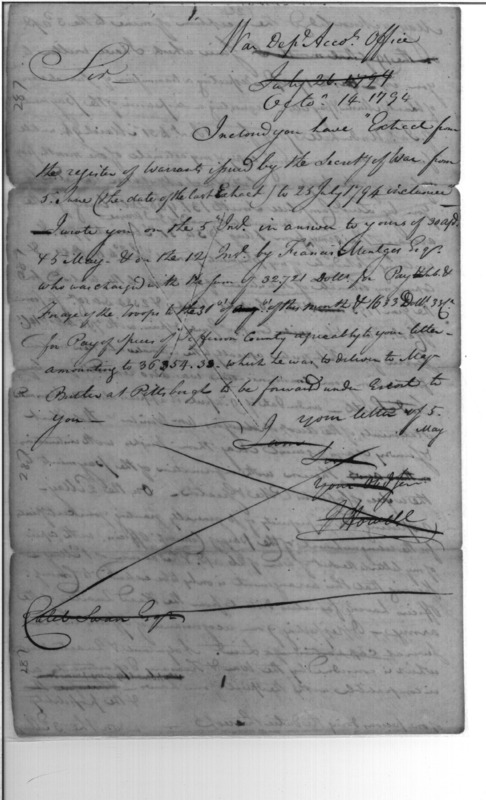 War Dept. Accots. Office
Sir
July 26. 1794
Octo. 14. 1794
Inclosed you have Extract from
the register of Warrants issued by the Secrety of War from
5. June (the date of the last Extract) to 25 July 1794 inclusive
I wrote you on the 5 Inst. in answer to yours of 30
& 5 May. & on the 12 Inst. by Francis Mentges Esqr.
who was charged with the sum of 32721 Dolls. for Pay Subt. &
Forage of the troops to the 31st of of this month &
for Pay of Spies of Jefferson County agreeably to your letter
amounting to 36,359.53. which he was to deliver to Major
Butler at Pittsburgh to be forwarded under Escort to
you
I your letter of 5.
May
I am
Sir
Your
J Howell
Caleb Swan Esqr.
287
287
287